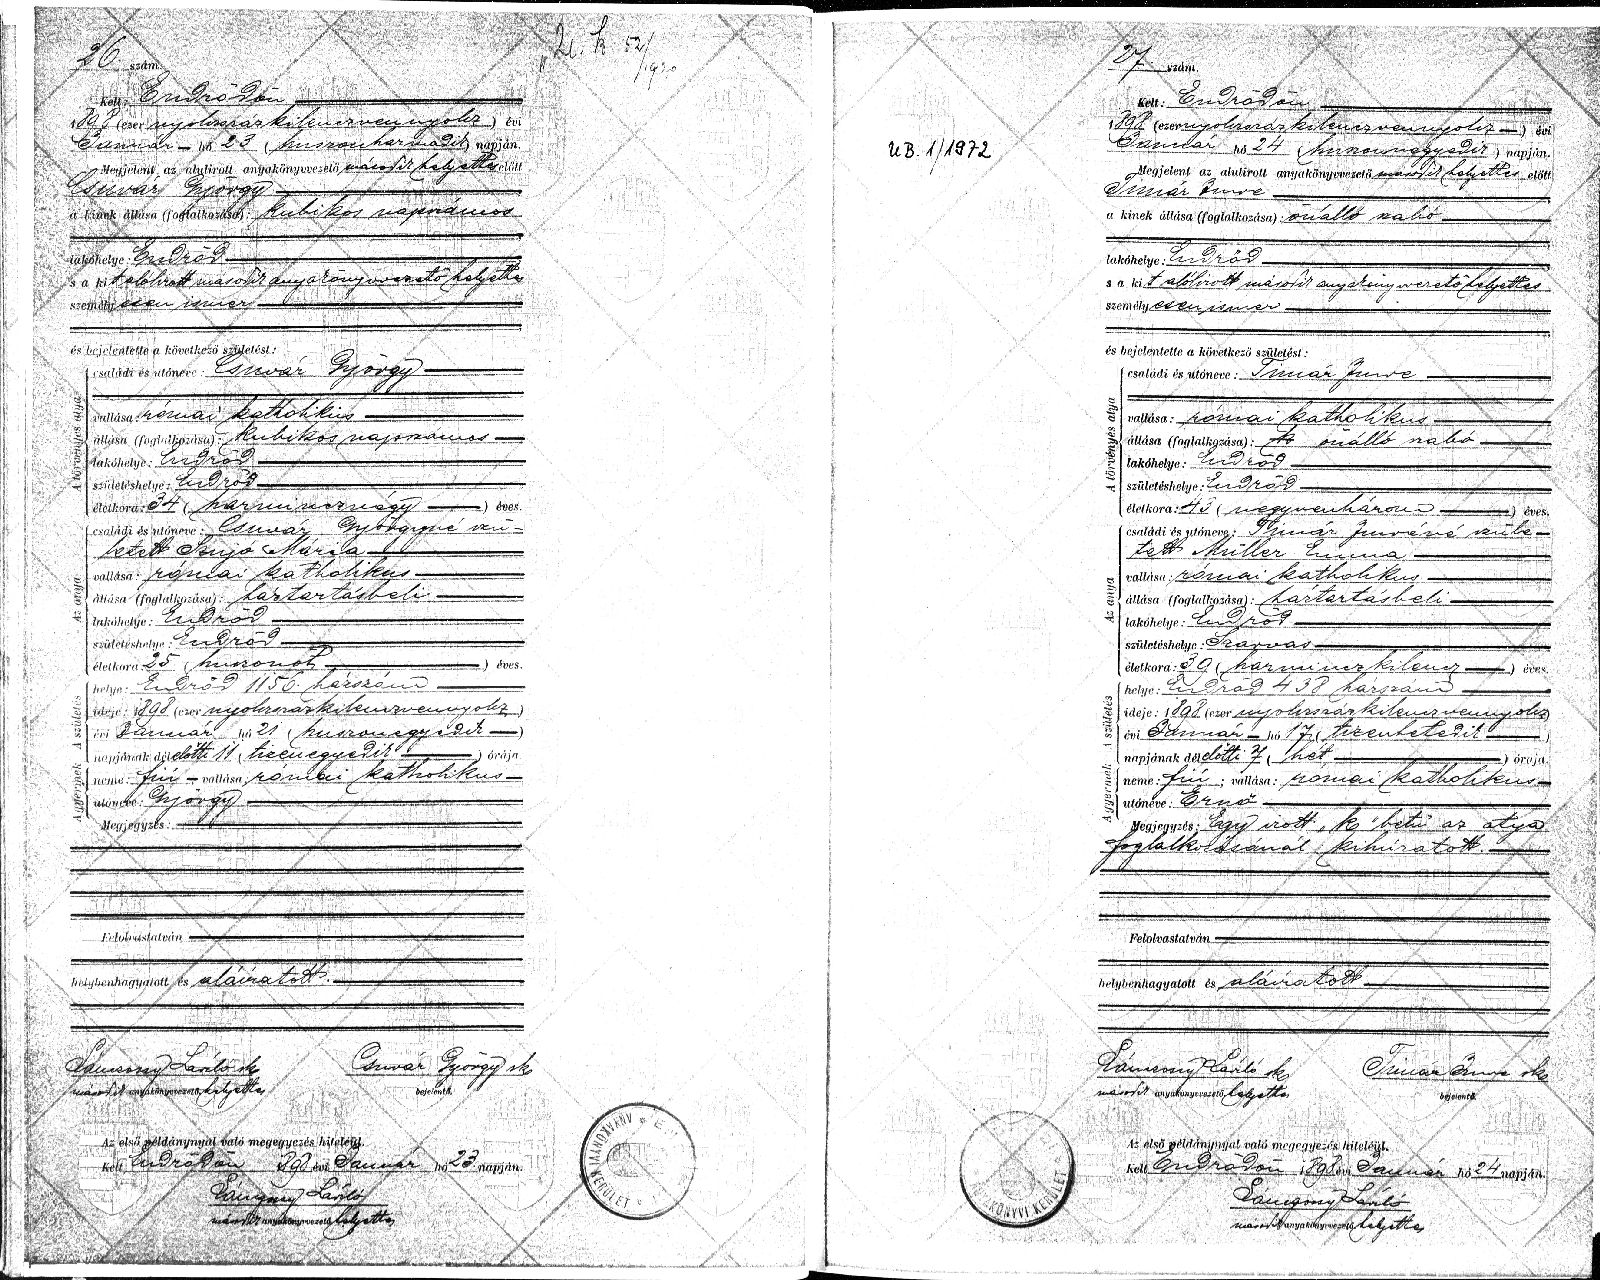 26 szám.
Kelt: Endrődön
1898 (ezer nyolcszázkilenczvennyolcz) évi
Január hó 23 (huszonharmadik) napján.
Megjelent az alulírott anyakönyvvezető második helyettes előtt
Csuvár György
a kinek állása (foglalkozása): kubikos napszámos
lakóhelye: Endrőd
s a kit alólirott második anyakönyvvezető helyettes
személyesen ismer
és bejelentette a következő születést:
A törvényes atya
családi és utóneve: Csuvár György
vallása: római katholikus
állása (foglalkozása): kubikos napszámos
lakóhelye: Endrőd
születéshelye: Endrőd
életkora: 34 (harmincznégy) éves.
Az anya
családi és utóneve: Csuvár Györgyné szü-
letett Szujo Mária
vallása: római katholikus
állása (foglalkozása): háztartásbeli
lakóhelye: Endrőd
születéshelye: Endrőd
életkora: 25 (huszonöt) éves.
A születés
helye: Endrőd 1156 házszám
ideje: 1898 (ezer nyolcszázkilenczvennyolcz)
évi Január hó 21 (huszonegyedik)
napjának délelőtti 11 (tizenegyedik) órája.
A gyermek
neme: fiú vallása: római katholikus
utóneve: György
Megjegyzés:
Felolvastatván
helybenhagyatott és aláíratott.
Lánczony László sk
Csuvár György sk
második anyakönyvvezető helyettes
bejelentő.
Az első példánynyal való megegyezés hiteléül.
Kelt Endrődön 1898 évi Január hó 23 napján.
Lánczony László
második anyakönyvvezető helyettes
52/1920
ANYAKÖNYVI KERÜLET
UB. 1/1972
27 szám.
Kelt: Endrődön
1898 (ezer nyolcszázkilenczvennyolcz) évi
Január hó 24 (huszonnegyedik) napján.
Megjelent az alulírott anyakönyvvezető második helyettes előtt
Timár Imre
a kinek állása (foglalkozása): önálló szabó
lakóhelye: Endrőd
s a kit alólirott második anyakönyvvezető helyettes
személyesen ismer
és bejelentette a következő születést:
A törvényes atya
családi és utóneve: Timár Imre
vallása: római katholikus
állása (foglalkozása): önálló szabó
lakóhelye: Endrőd
születéshelye: Endrőd
életkora: 43 (negyvenhárom) éves.
Az anya
családi és utóneve: Timár Imréné szüle-
tett Müller Emma
vallása: római katholikus
állása (foglalkozása): háztartásbeli
lakóhelye: Endrőd
születéshelye: Szarvas
életkora: 39 (harminczkilencz) éves.
A születés
helye: Endrőd 438 házszám
ideje: 1898 (ezer nyolcszázkilenczvennyolcz)
évi Január hó 17 (tizenhetedik)
napjának délelőtti 7 (hét) órája.
A gyermek
neme: fiú; vallása: római katholikus
utóneve: Ernő
Megjegyzés: Egy irott "k" betű az atya
foglalkozásánál kihúzatott.
Felolvastatván
helybenhagyatott és aláíratott
Lánczony László sk
Timár Imre sk
második anyakönyvvezető helyettes
bejelentő.
Az első példánynyal való megegyezés hiteléül.
Kelt Endrődön 1898 évi Január hó 24 napján.
Lánczony László
második anyakönyvvezető helyettes
ANYAKÖNYVI KERÜLET